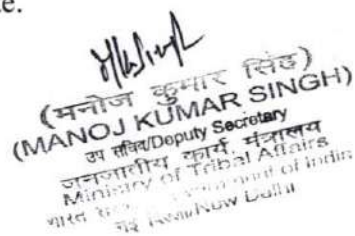 te.
(मनोज कुमार सिंह)
(MANOJ KUMAR SINGH)
उप सचिव/Deputy Secretary
जनजातीय कार्य मंत्रालय
Ministry of Tribal Affairs
भारत Government of India
नई दिल्ली/New Delhi